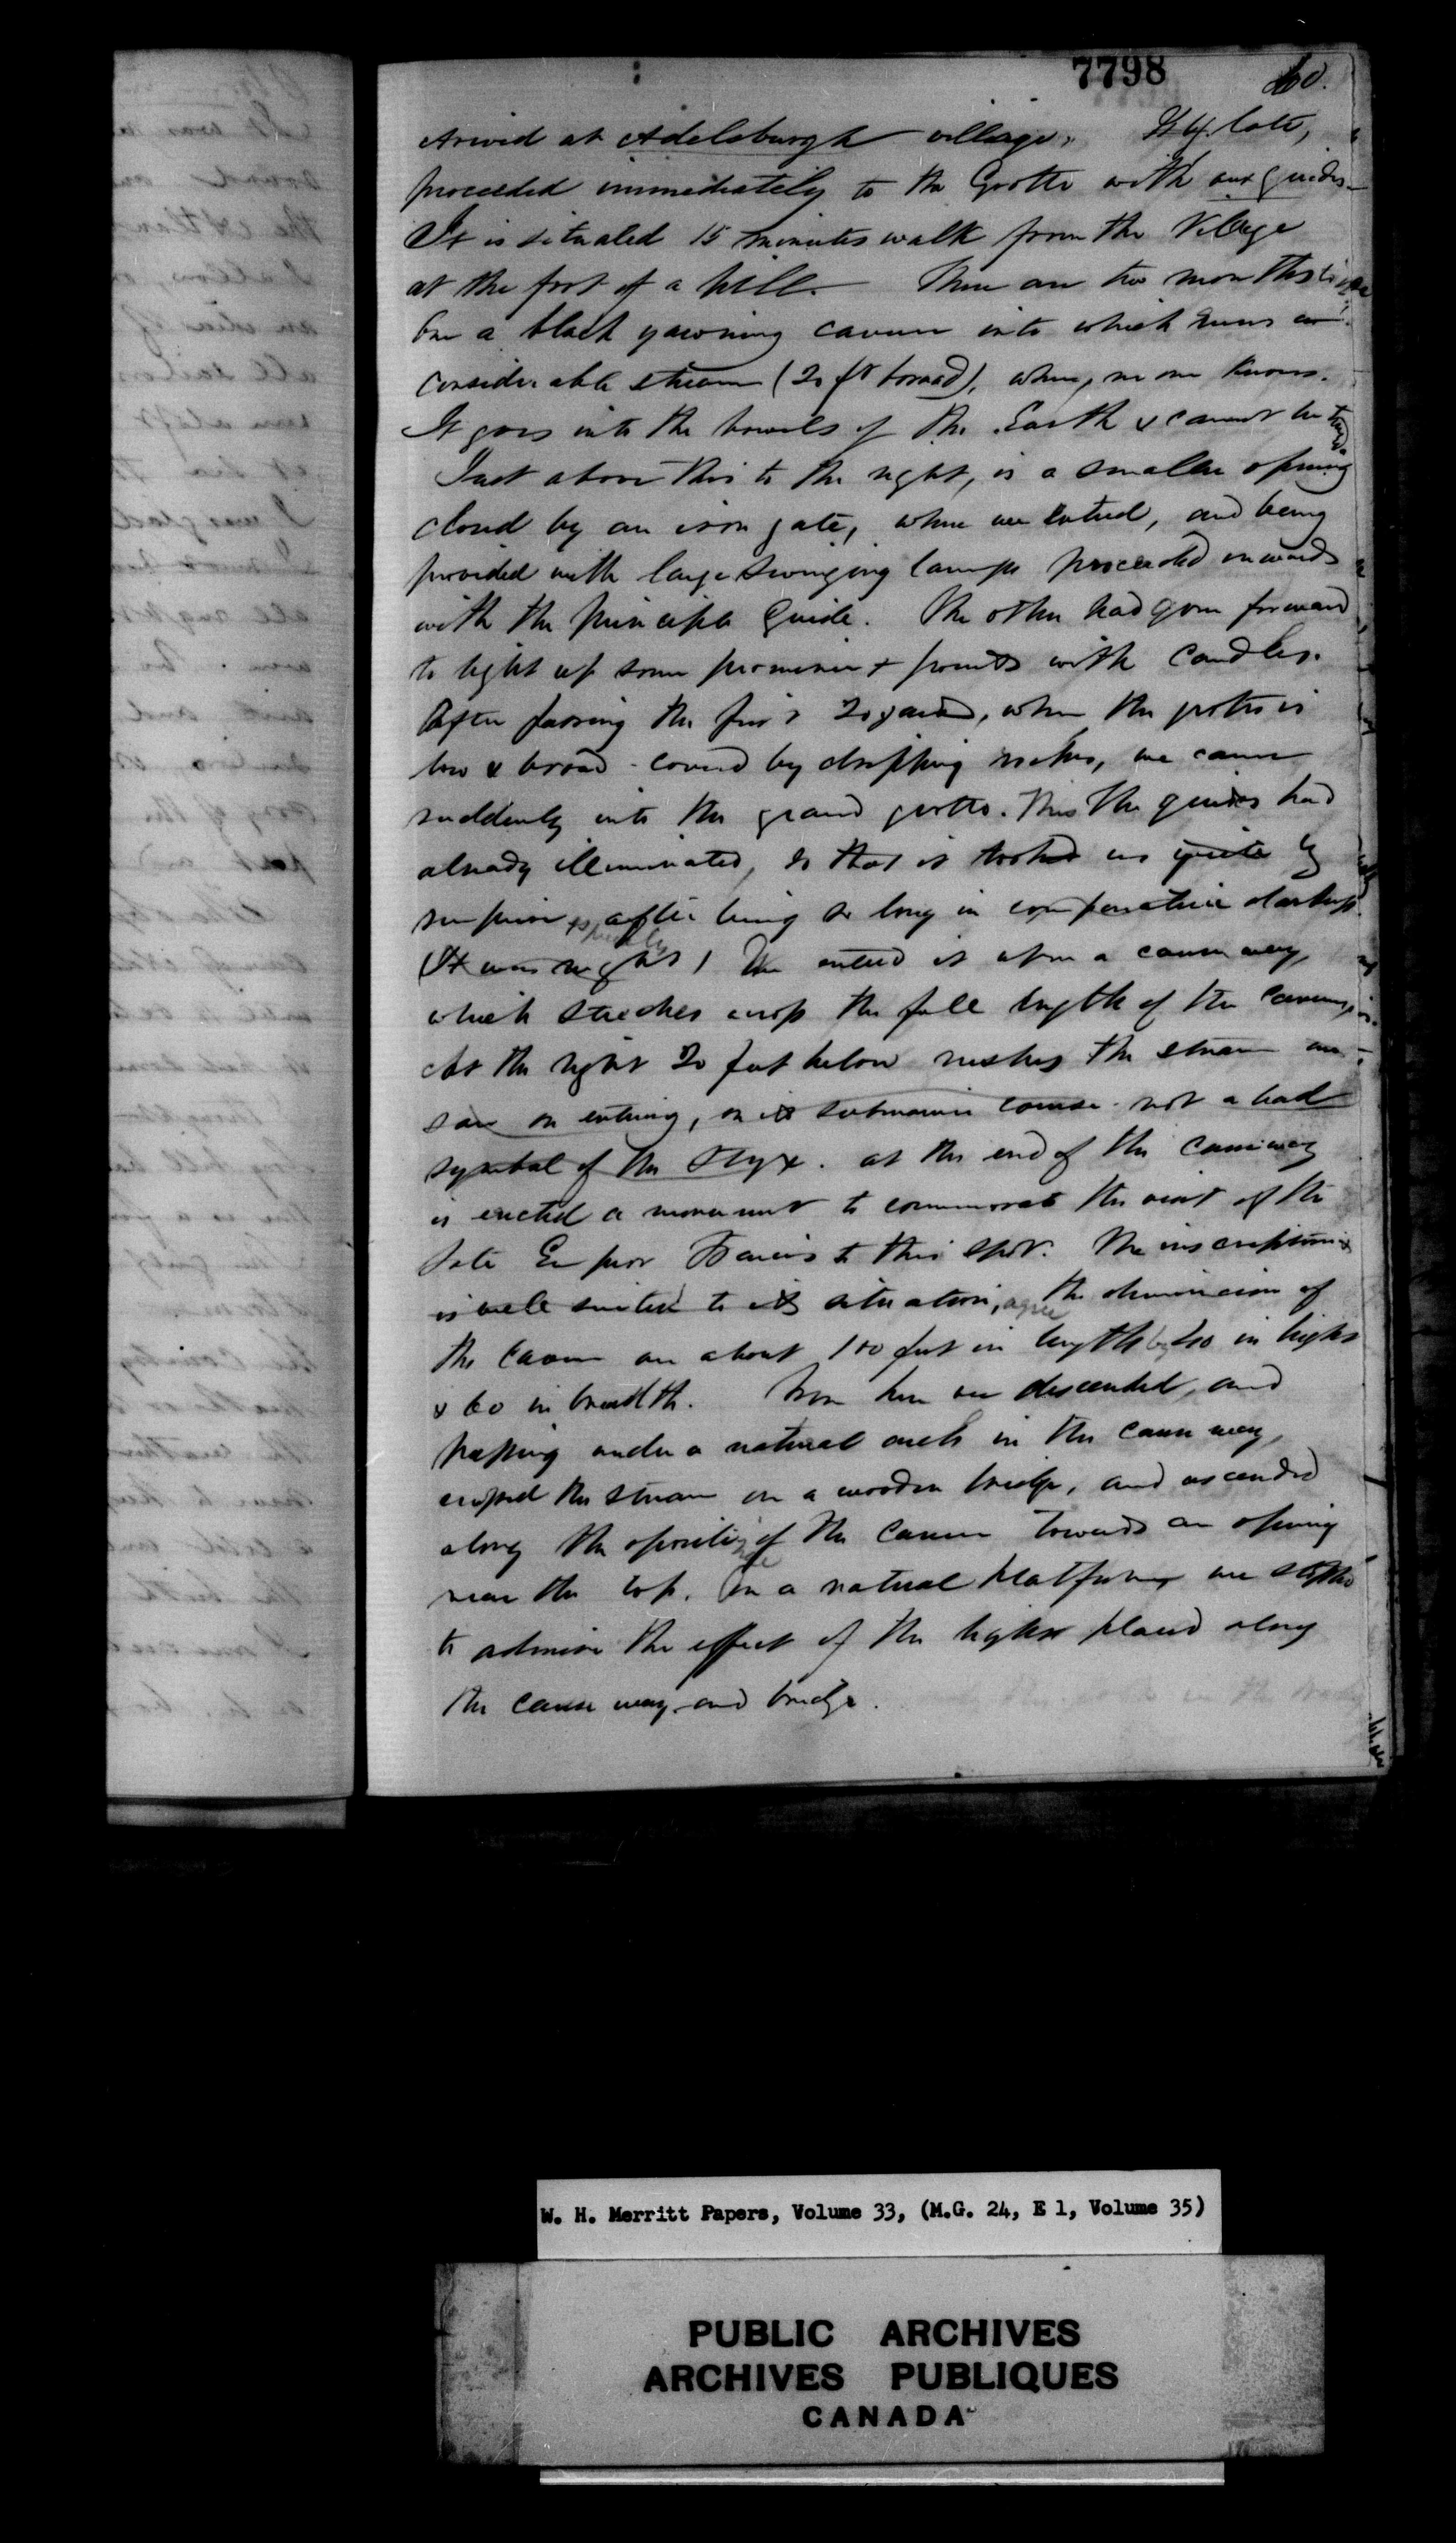 7798
60.
Arived at Adelsburgh village. late,
proceeded immediately to the Grotto with our guides -
It is situated 15 minutes walk from the Village
at the foot of a hill. There are two mouths to
One a black yawning cavern into which runs a
considerable stream (20 ft broad), where, no one knows.
It goes into the bowels of the Earth & cannot be traced
Just above this to the right, is a smaller opening
closed by an iron gate, where we entered, and being
provided with large swinging lamps proceeded inwards
with the principle Guide. The other had gone forward
to light up some prominent points with Candles.
After passing the first 20 yards, where the grotto is
low & broad - covered by dripping rocks, we came
suddenly into the grand grotto. This the guides had
already illuminated, so that it took us quite by
surprise, especially after being so long in comparative darkness.
(It was night) We entered it upon a causeway,
which stretches across the full length of the Cavern,
At the right 20 feet below rushes the stream we
saw on entering, on its submarine course - not a bad
symbol of the Styx. at the end of the Causeway
is erected a monument to commorate the visit of the
late Emperor Francis to this spot. The inscription
is well suited to its situation, the dimension of
the Cavern are about 100 feet in length by in hight
& 60 in breadth. From here we descended, and
passing under a natural arch in the causeway,
crossed the stream on a wooden bridge, and ascended
along the oposite side of the Cavern towards an opening
near the top. On a natural platform we stopped
to admire the effect of the lights placed along
the cause way and bridge.
W. H. Merritt Papers, Volume 33, (M.G. 24, E 1, Volume 35)
PUBLIC ARCHIVES
ARCHIVES PUBLIQUES
CANADA